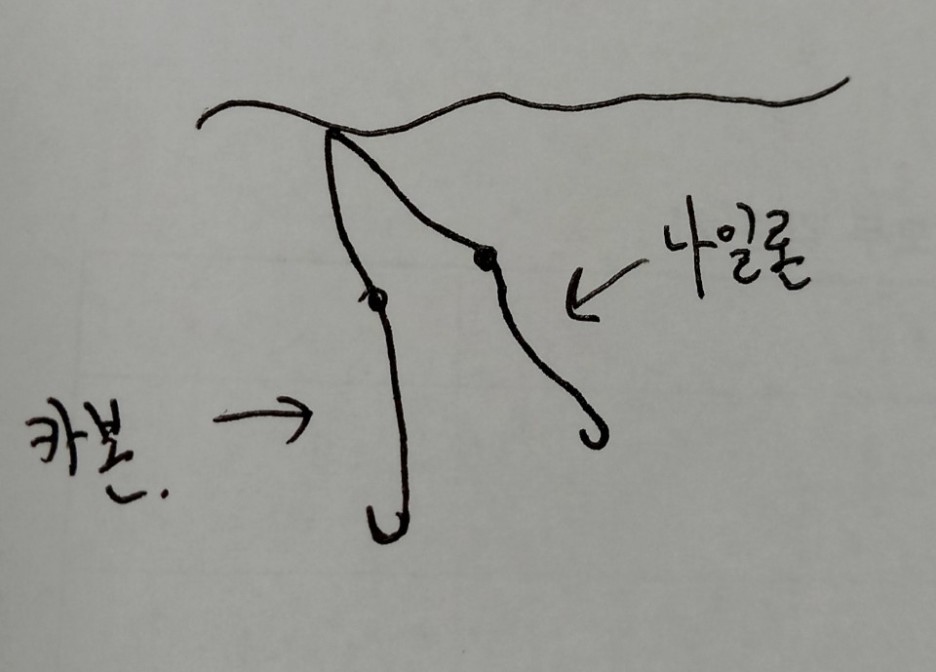 나일론
카본.